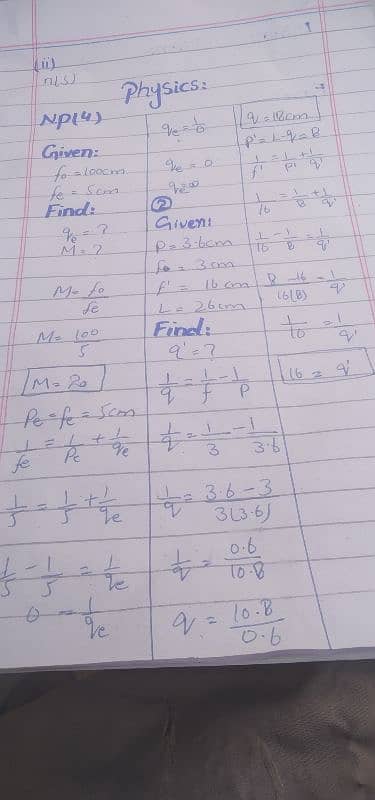 (ii)
Physics:
NP(4)
Given:
fo = 100cm
fe = 5cm
Find:
qe = ?
M = ?
M = fo/fe
M = 100/5
M = 20
Pe = fe = 5cm
1/fe = 1/Pe + 1/qe
1/5 = 1/5 + 1/qe
1/5 - 1/5 = 1/qe
0 = 1/qe
qe = 1/0
qe = 0
qe = ∞
②
Given:
P = 3.6cm
fo = 3cm
f' = 16cm
L = 26cm
Find:
q' = ?
1/q = 1/f - 1/P
1/q = 1/3 - 1/3.6
1/q = 3.6 - 3/3(3.6)
1/q = 0.6/10.8
q = 10.8/0.6
q = 18cm
P' = L - q = 8
1/f' = 1/P' + 1/q'
1/16 = 1/8 + 1/q'
1/16 - 1/8 = 1/q'
8 - 16/16(8) = 1/q'
1/16 = 1/q'
16 = q'